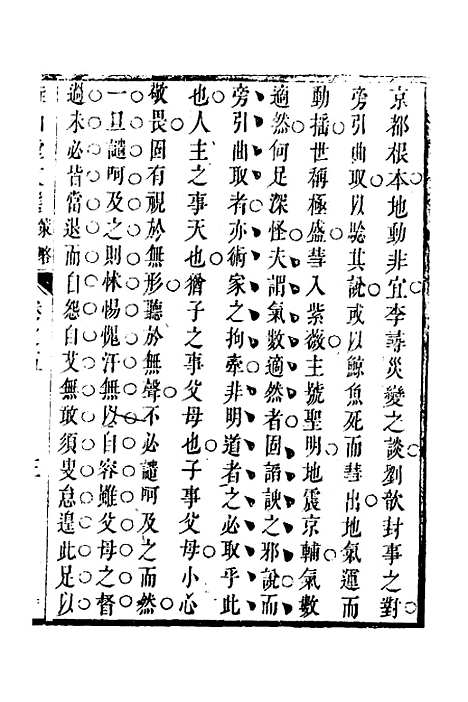 京都根本地動非宜李尋災變之談劉歆封事之對
旁引曲取以騐其說或以鯨魚死而彗出地氣運而
動搖世稱極盛彗入紫薇主號聖明地震京輔氣數
適然何足深怪夫謂氣數適然者固謟諛之邪說而
旁引曲取者亦術家之拘牽非明道者之必取乎此
也人主之事天也猶子之事父母也子事父母小心
敬畏固有視於無形聽於無聲不必譴呵及之而然
一旦譴呵及之則怵惕愧汗無以自容雖父母之督
過未必皆當退而自怨自艾無敢須叟怠遑此足以